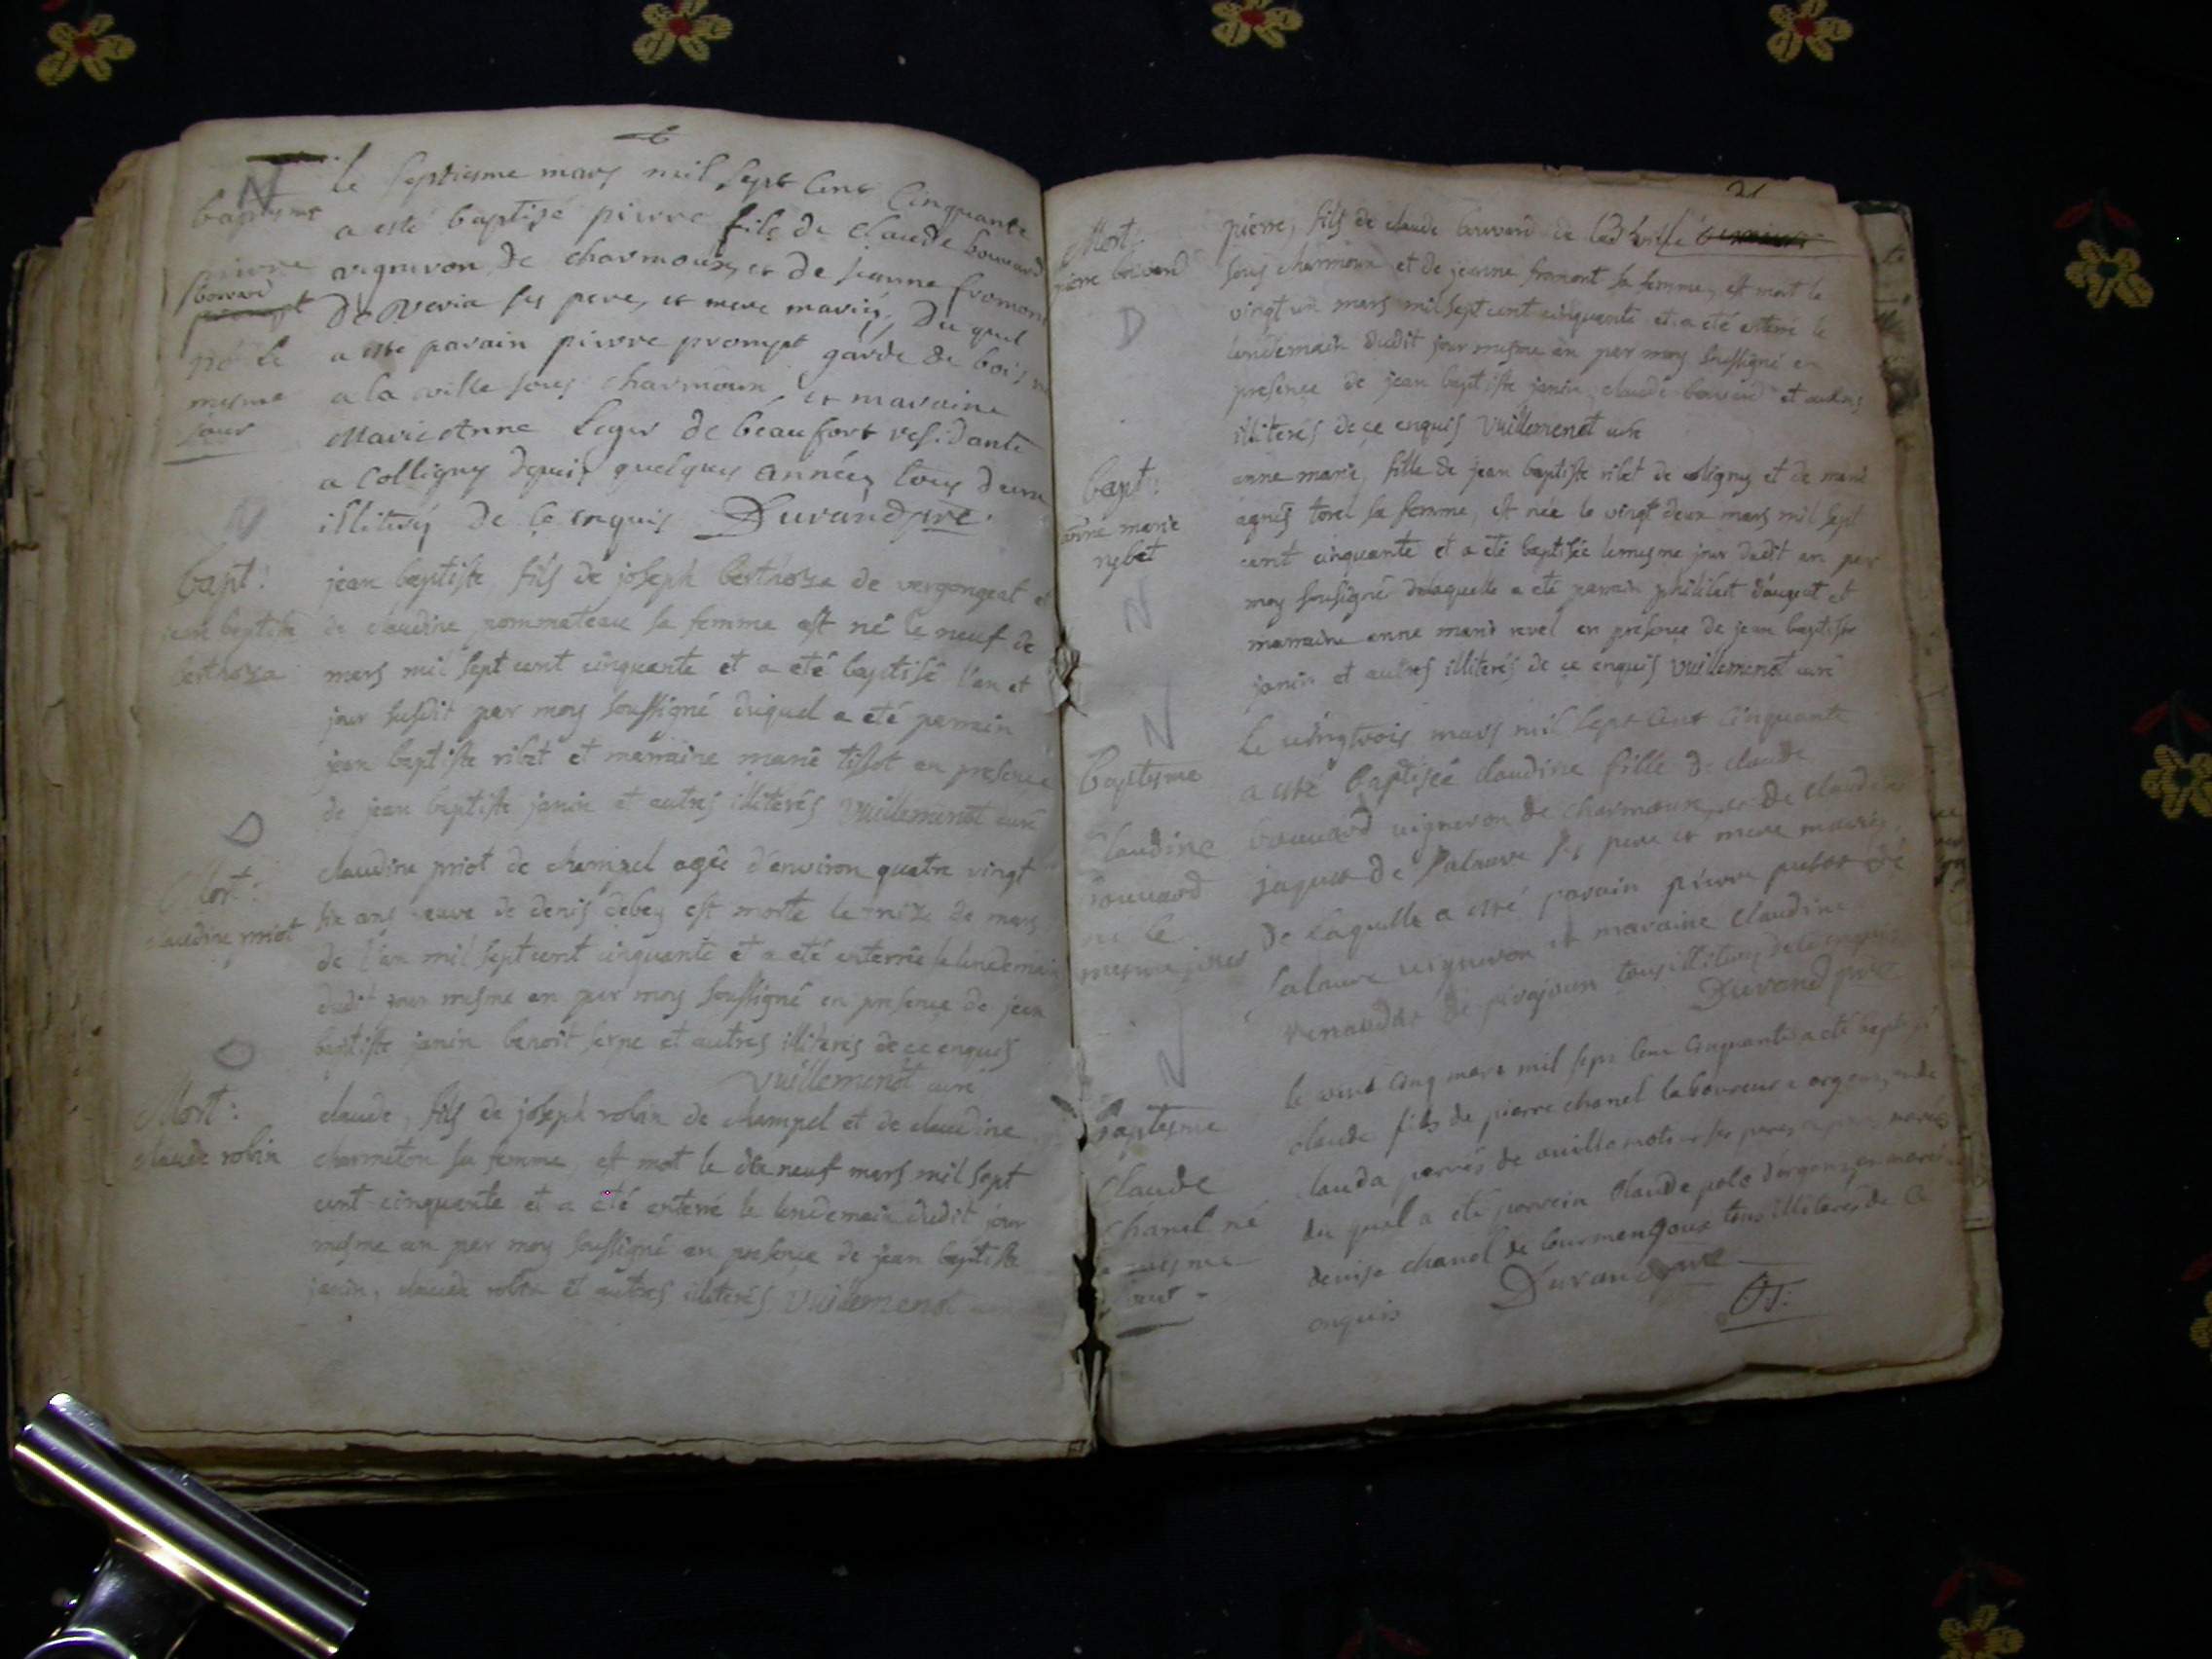 N
baptisme
pierre
bouvard
prompt
né le
mesme
jour
le septiesme mars mil sept cent cinquante
a esté baptisé pierre fils de claude bouvard
vigneron de charmoux, et de jeanne fromont
de veria ses pere, et mere mariés, du quel
a esté parain pierre prompt garde de bois
a la ville sous charmoux, et maraine
Marie Anne Leger de béaufort residante
a Colligny depuis quelques années tous deux
illiterés de ce enquis Durand pre
N
bapt:
jean baptiste
berthoza
jean baptiste, fils de joseph berthoza de vergongeat et
de claudine pommateau sa femme est né le neuf de
mars mil sept cent cinquante et a eté baptisé l'an et
jour susdit par moy soussigné duquel a eté parrain
jean baptiste ribet et marraine marie tissot en presence
de jean baptiste janin et autres illiterés Vuillemenot curé
D
Mort:
claudine priot
claudine priot de champel agée d'environ quatre vingt
six ans veuve de denis debey est morte le treize de mars
de l'an mil sept cent cinquante et a eté enterrée le lendemain
dudit jour mesme an par moy soussigné en presence de jean
baptiste janin benoit serne et autres illiterés de ce enquis
Vuillemenot curé
Mort:
claude robin
claude, fils de joseph robin de champel et de claudine
charmeton sa femme, est mot le dix neuf mars mil sept
cent cinquante et a eté enterré le lendemain dudit jour
mesme an par moy soussigné en presence de jean baptiste
janin, claude robin et autres illiterés Vuillemenot curé
21
Mort:
pierre bouvard
D
pierre, fils de claude bouvard de la ville
sous charmoux et de jeanne fromont sa femme, est mort le
vingt un mars mil sept cent cinquante et a eté enterré le
lendemain dudit jour mesme an par moy soussigné en
presence de jean baptiste janin, claude bouvard et autres
illiterés de ce enquis Vuillemenot curé
bapt:
anne marie
rybet
N
anne marie, fille de jean baptiste ribet de coligny et de marie
agnes torel sa femme, est née le vingt deux mars mil sept
cent cinquante et a eté baptisée le mesme jour dudit an par
moy sousigné delaquelle a eté parrain philibert d'augeat et
marraine anne marie revel en presence de jean baptiste
janin et autres illiterés de ce enquis Vuillemenot curé
N
Baptisme
Claudine
bouvard
né le
mesme jour
Le vingtrois mars mil sept cent cinquante
a esté baptisée claudine fille de claude
bouvard vigneron de charmoux, et de claudine
jaquet de salavre ses pere et mere mariés,
de laquelle a esté parain pierre putot de
salavre vigneron et maraine claudine
renaudat de pirajoux tous illiterés de ce enquis
Durand pre
N
Baptisme
Claude
Chanel né
mesme
jour
le vint cinq mars mil sept cent cinquante a eté baptisé
claude fils de pierre chanel laboureur a argenz, et de
clauda de ses pere et mere mariés
du quel a eté parrein claude d'argenz et mareine
denise chanel de courmengoux tous illiterés de ce
enquis Durand pre